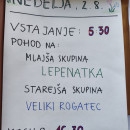 NEDELJA, 2.8.
VSTAJANJE: 5:30
POHOD NA:
MLAJŠA SKUPINA
LEPENATKA
STAREJŠA SKUPINA
VELIKI ROGATEC